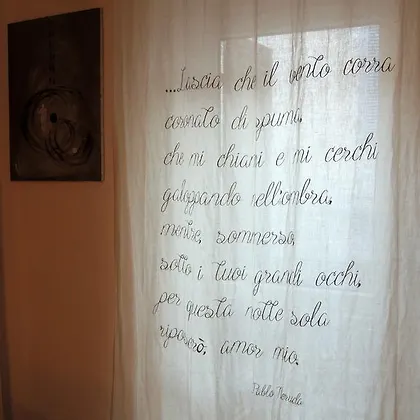 ...Lascia che il vento corra
coronato di spuma,
che mi chiami e mi cerchi
galoppando nell'ombra,
mentre, sommerso,
sotto i tuoi grandi occhi,
per questa notte sola
riposerò, amor mio.
Pablo Neruda